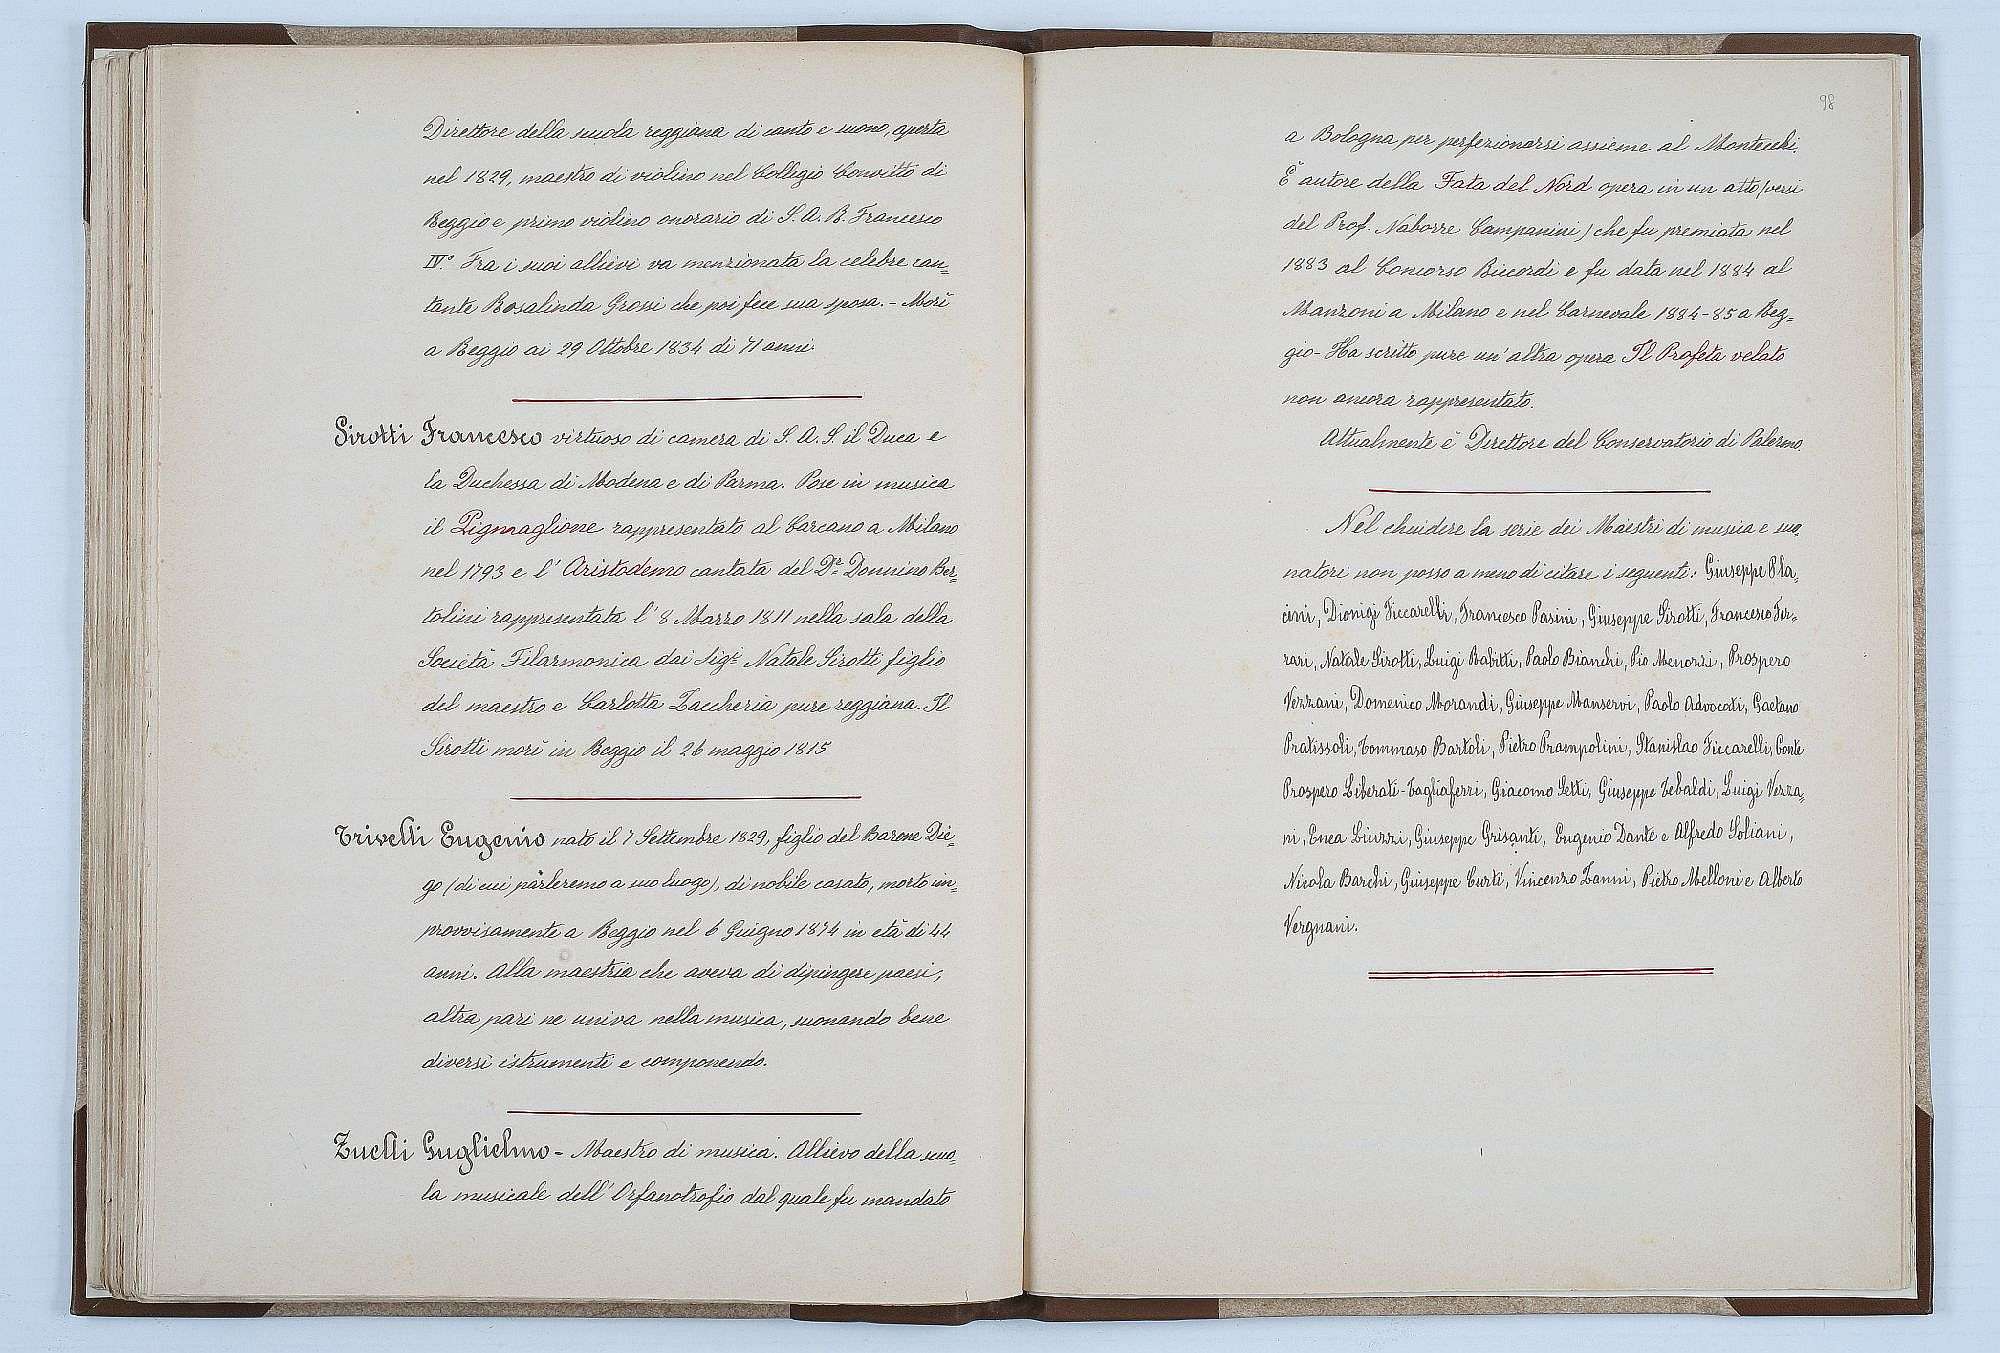 Direttore della scuola reggiana di canto e suono, aperta
nel 1829, maestro di violino nel Collegio Convitto di
Reggio e primo violino onorario di S. A. R. Francesco
IV.º Fra i suoi allievi va menzionata la celebre can=
tante Rosalinda Grossi che poi fece sua sposa. - Morì
a Reggio ai 29 Ottobre 1834 di 71 anni.
Sirotti Francesco virtuoso di camera di S. A. S. il Duca e
la Duchessa di Modena e di Parma. Pose in musica
il Pigmaglione rappresentato al Carcano a Milano
nel 1793 e l' Aristodemo cantata del Dr. Donnino Ber=
tolini rappresentata l' 8 Marzo 1811 nella sala della
Società Filarmonica dai Sigri Natale Sirotti figlio
del maestro e Carlotta Zaccheria pure reggiana. Il
Sirotti morì in Reggio il 26 maggio 1815
Trivelli Eugenio nato il 7 Settembre 1829, figlio del Barone Die=
go (di cui parleremo a suo luogo), di nobile casato, morto im=
provvisamente a Reggio nel 6 Giugno 1874 in età di 44
anni. Alla maestria che aveva di dipingere paesi,
altra pari ne univa nella musica, suonando bene
diversi istrumenti e componendo.
Zuelli Guglielmo - Maestro di musica. Allievo della scuo=
la musicale dell' Orfanotrofio dal quale fu mandato
98
a Bologna per perfezionarsi assieme al Montecchi.
È autore della Fata del Nord opera in un atto (versi
del Prof. Naborre Campanini) che fu premiata nel
1883 al Concorso Ricordi e fu data nel 1884 al
Manzoni a Milano e nel Carnevale 1884-85 a Reg=
gio - Ha scritto pure un' altra opera Il Profeta velato
non ancora rappresentato.
Attualmente è Direttore del Conservatorio di Palermo.
Nel chiudere la serie dei Maestri di musica e suo=
natori non posso a meno di citare i seguenti: Giuseppe Pla=
cini, Dionigi Ficcarelli, Francesco Pasini, Giuseppe Sirotti, Francesco Fer=
rari, Natale Sirotti, Luigi Babitti, Paolo Bianchi, Pio Menozzi, Prospero
Vezzani, Domenico Morandi, Giuseppe Manservi, Paolo Advocati, Gaetano
Pratissoli, Tommaso Bartoli, Pietro Prampolini, Stanislao Ficcarelli, Conte
Prospero Liberati-Tagliaferri, Giacomo Setti, Giuseppe Tebaldi, Luigi Vezza=
ni, Enea Liuzzi, Giuseppe Grisanti, Eugenio Dante e Alfredo Soliani,
Nicola Barchi, Giuseppe Curti, Vincenzo Zanni, Pietro Melloni e Alberto
Vergnani.